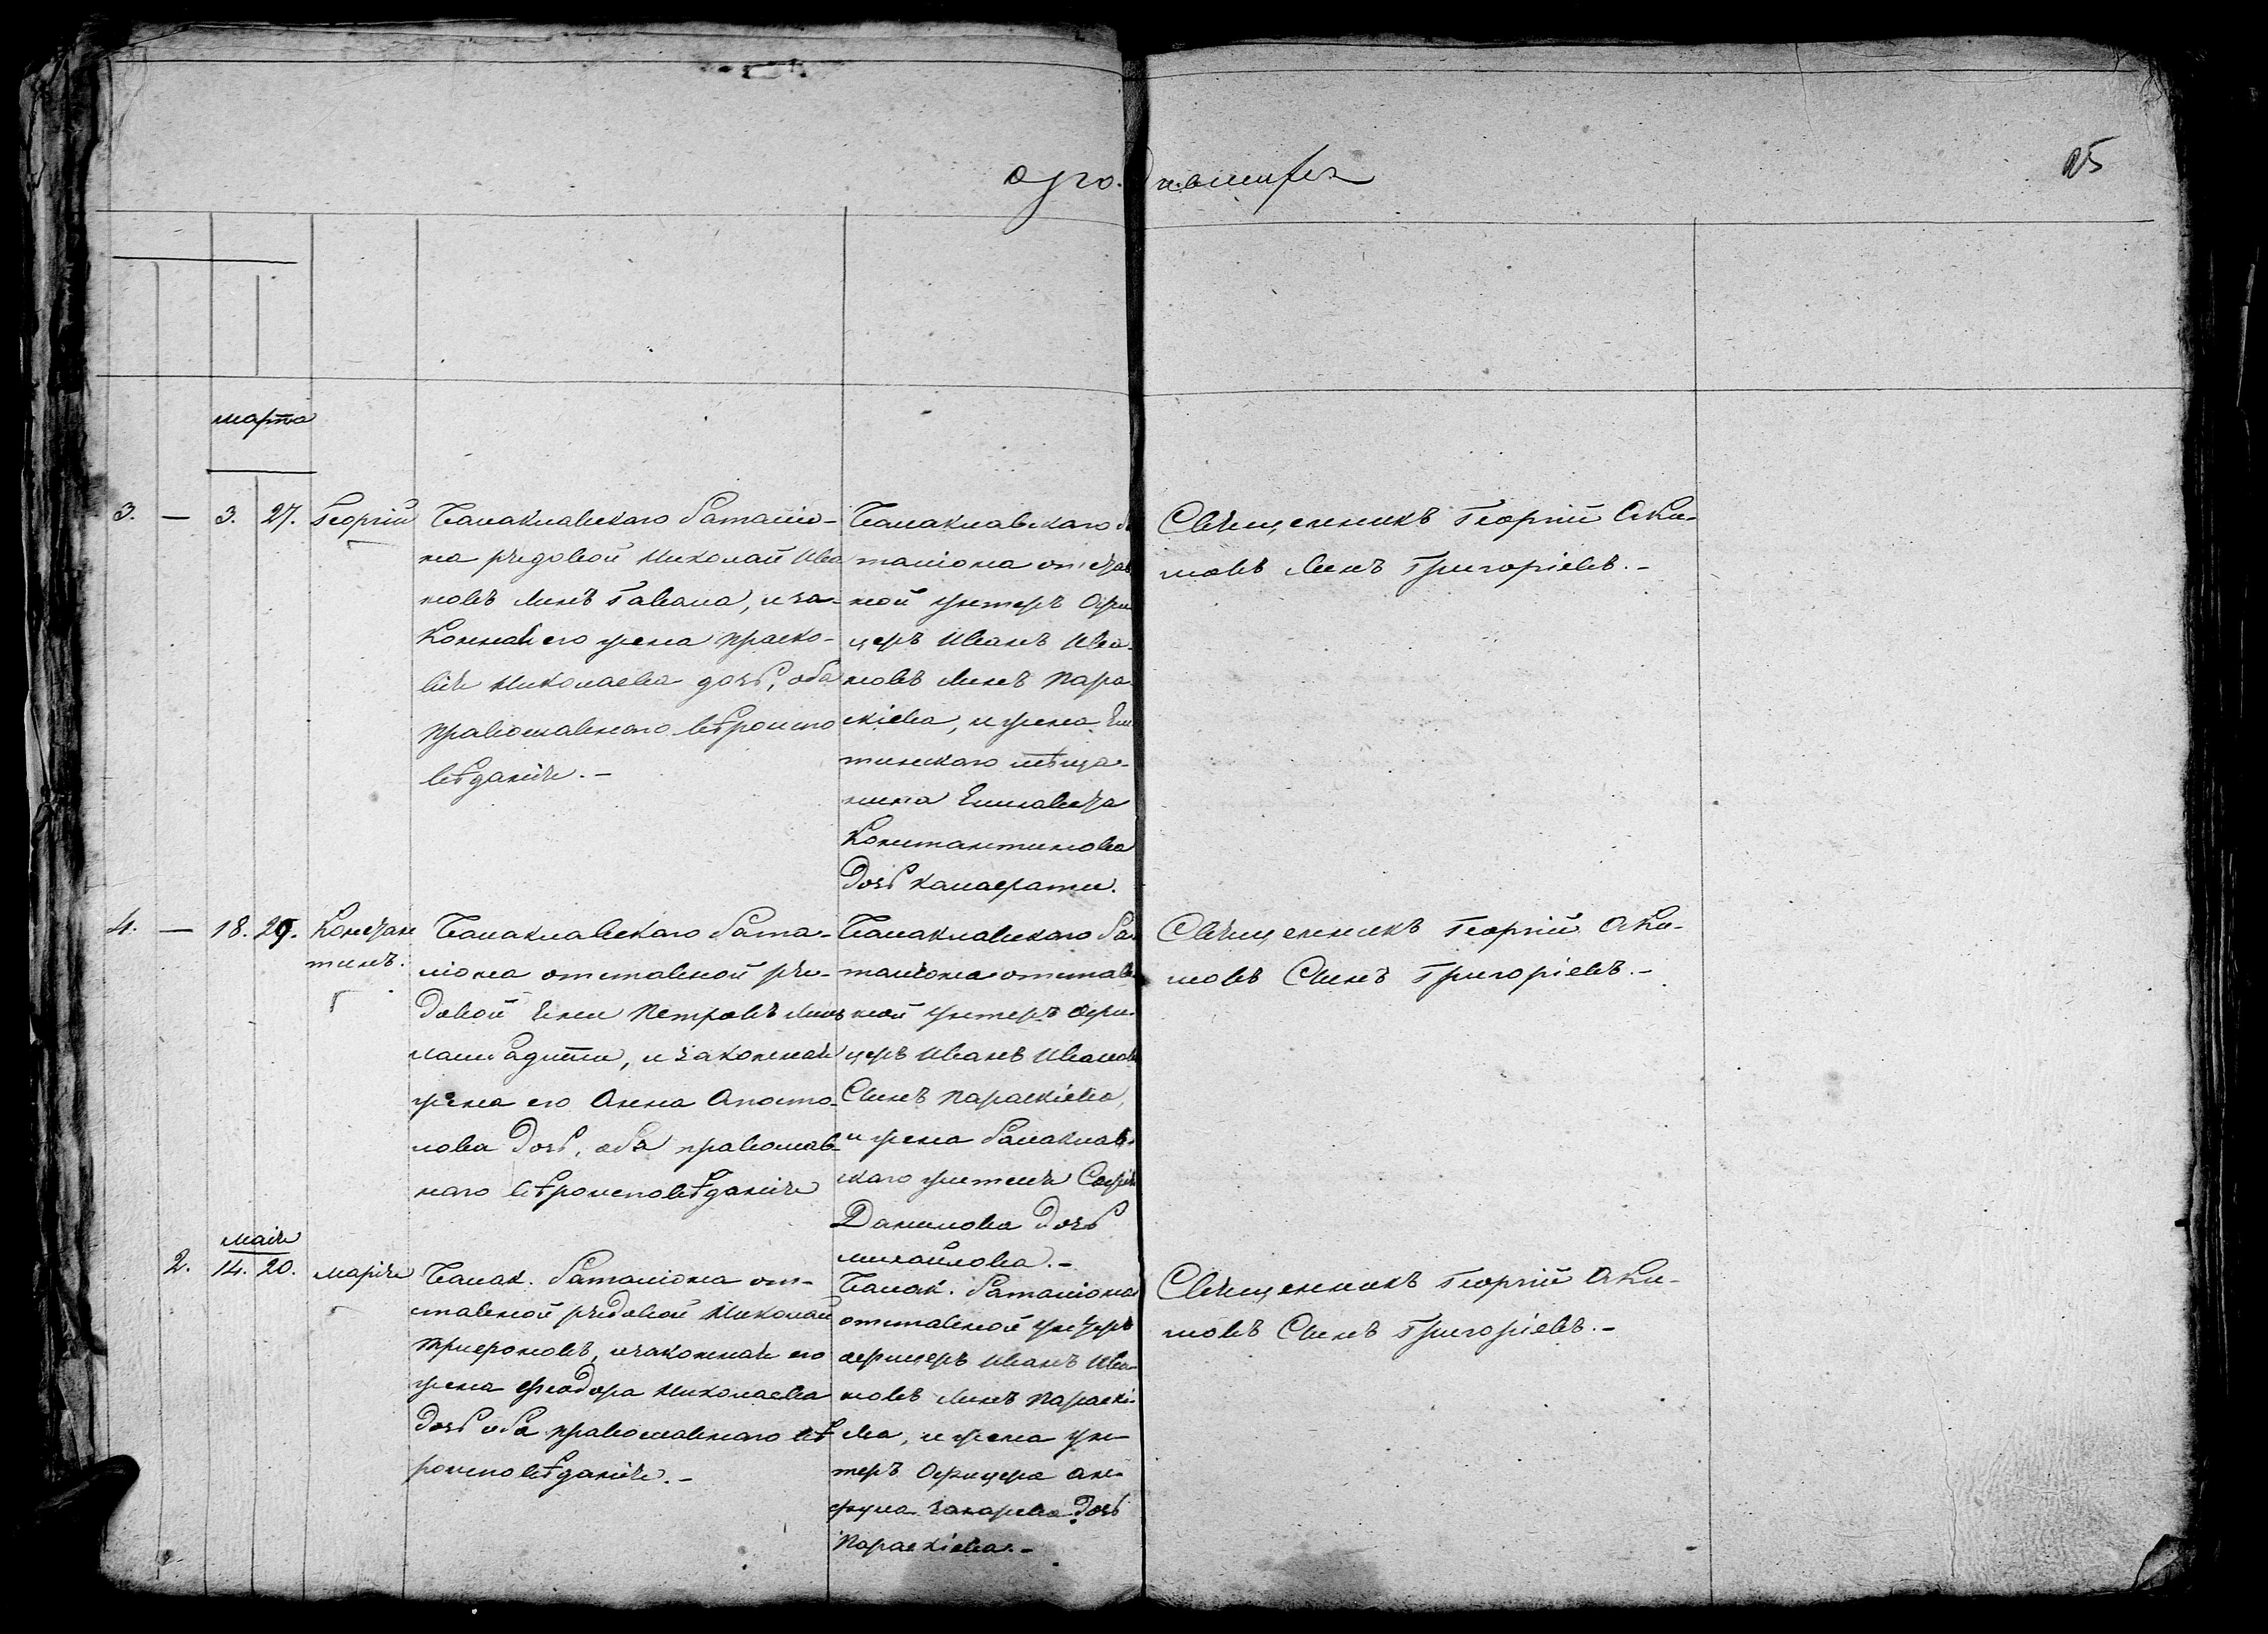 25
марта
3. — 3. 27. Георгій
Балаклавскаго баталіо-
на рядовой Николай Ива
новъ сынъ Гавала, и за-
конная его жена Праско-
вія Николаева дочь, оба
православнаго вѣроиспо
вѣданія. –
Балаклавскаго ба
таліона отстав
ной унтеръ Офи
церъ Иванъ Ива-
новъ сынъ Пара
скіева, и жена
тинскаго мѣща-
нина Елисавета
Константинова
дочь
Священникъ Георгій Аки-
мовъ сынъ Григоріевъ. –
4. — 18. 29. Констан
тинъ.
Балаклавскаго бата-
ліона отставной ря-
довой Яни Петровъ сынъ
и законная
жена его Анна Апосто-
лова дочь, оба православ-
наго вѣроисповѣданія
Балаклавскаго ба
таліона отстав
ной унтеръ Офи-
церъ Иванъ Иванов
Сынъ Параскіева,
и жена балаклав-
скаго жителя Софія
Данилова дочь
Михайлова. –
Священникъ Георгій Аки-
мовъ Сынъ Григоріевъ. –
маія
2. 14. 20. Марія
Балак. баталіона от-
ставной рядовой Николай
Трифоновъ, и законная его
жена Феодора Николаева
дочь оба православнаго вѣ
роисповѣданія. –
Балак. баталіона
отставной унтеръ
офицеръ Иванъ Ива-
новъ сынъ Параскі-
ева, и жена ун-
теръ Офицера Ан-
фуса Захарева дочь
Параскіева. –
Священникъ Георгій Аки-
мовъ Сынъ Григоріевъ. –